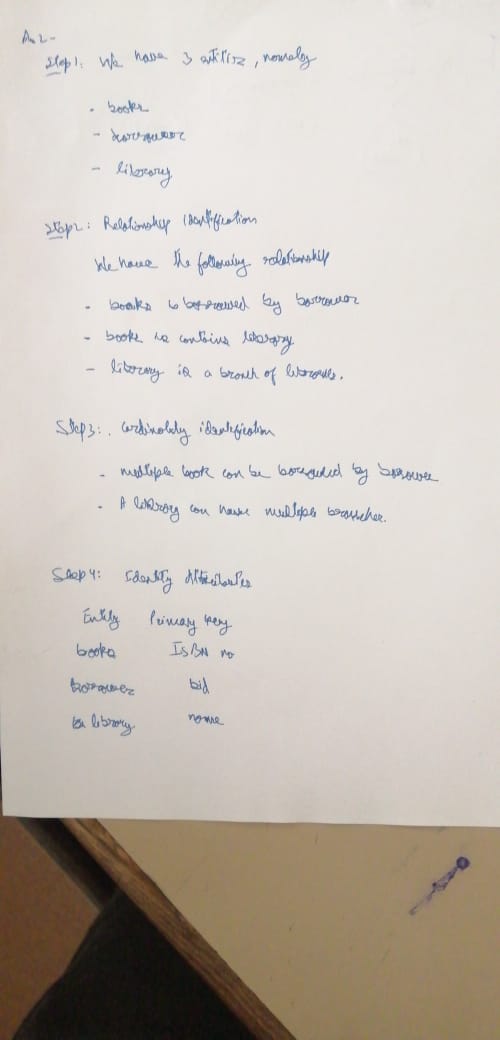 A.2-
Step1: We have 3 entities, namely
- books
- borrower
- library
Step2: Relationship identification
We have the following relationship
- books borrowed by borrower
- books contains library
- library is a branch of
Step3: Cardinality identification
- multiple book can be by borower
- A library can have multiple
Step4: Identify Attributes
Entity Primary key
books ISBN no
borrower bid
library name